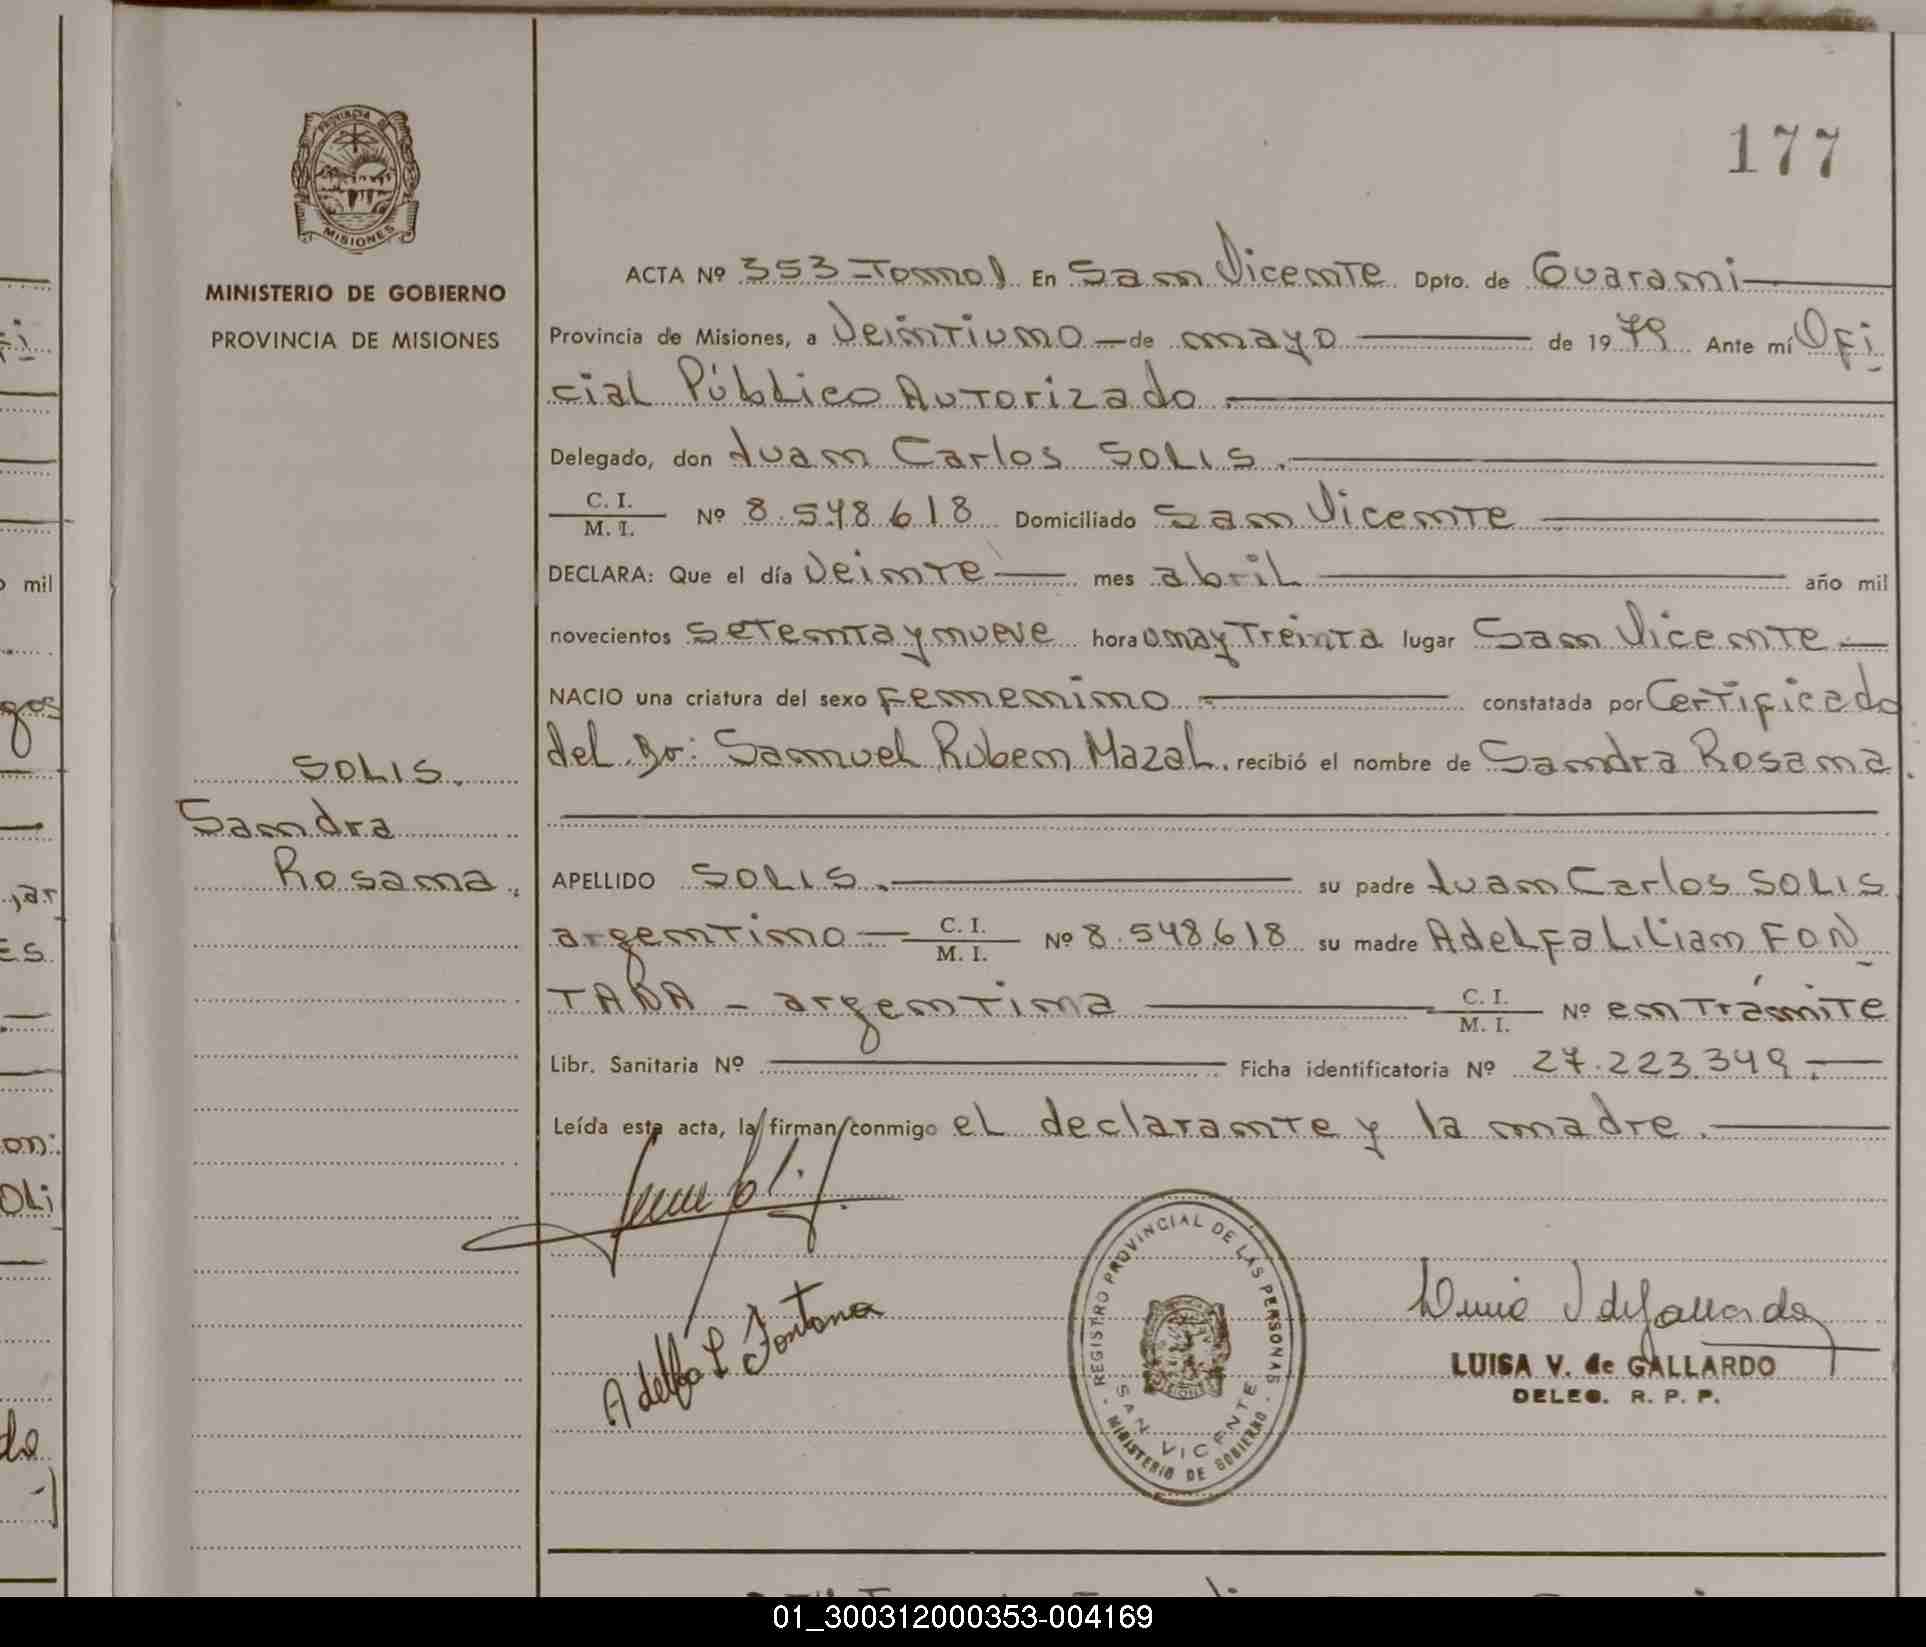 177
PROVINCIA DE
MISIONES
MINISTERIO DE GOBIERNO
PROVINCIA DE MISIONES
ACTA Nº 353 - Tomo I En San Vicente Dpto. de Guarani
Provincia de Misiones, a veintiuno de mayo de 1979 Ante mí Ofi
cial Público Autorizado.
Delegado, don Juan Carlos SOLIS.
C. I.
M. I. Nº 8.548.618 Domiciliado San Vicente
DECLARA: Que el día veinte mes abril año mil
novecientos setenta y nueve hora una y treinta lugar San Vicente
NACIO una criatura del sexo femenino constatada por Certificado
del Dr: Samuel Ruben Mazal. recibió el nombre de Sandra Rosana.
SOLIS.
Sandra
Rosana.
APELLIDO SOLIS. su padre Juan Carlos SOLIS
argentino C. I. M. I. Nº 8.548.618 su madre Adelfa Lilian FON
TANA - argentina C. I. M. I. Nº en trámite
Libr. Sanitaria Nº Ficha identificatoria Nº 27.223.349.
Leída esta acta, la firman conmigo el declarante y la madre.
Adelfa L Fontana
REGISTRO PROVINCIAL DE LAS PERSONAS
SAN VICENTE
MINISTERIO DE GOBIERNO
LUISA V. de GALLARDO
DELEG. R. P. P.
01_300312000353-004169